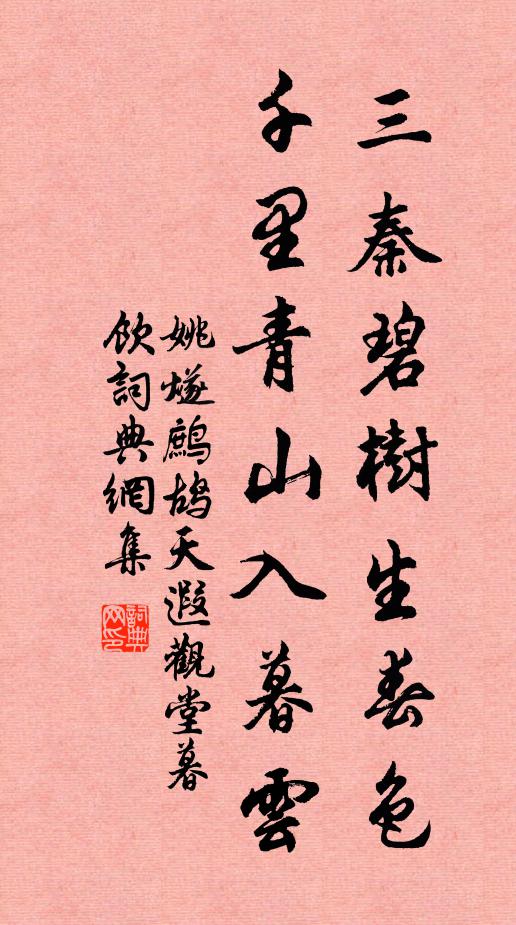 三秦碧樹生春色
千里青山入暮雲
姚燧鷓鴣天遐觀堂暮
飲詞典網集
詞典
网印